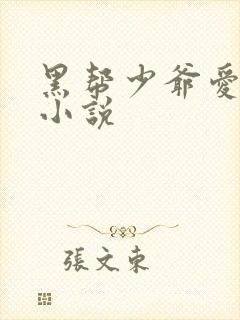 黑帮少爷愛
小說
張文東